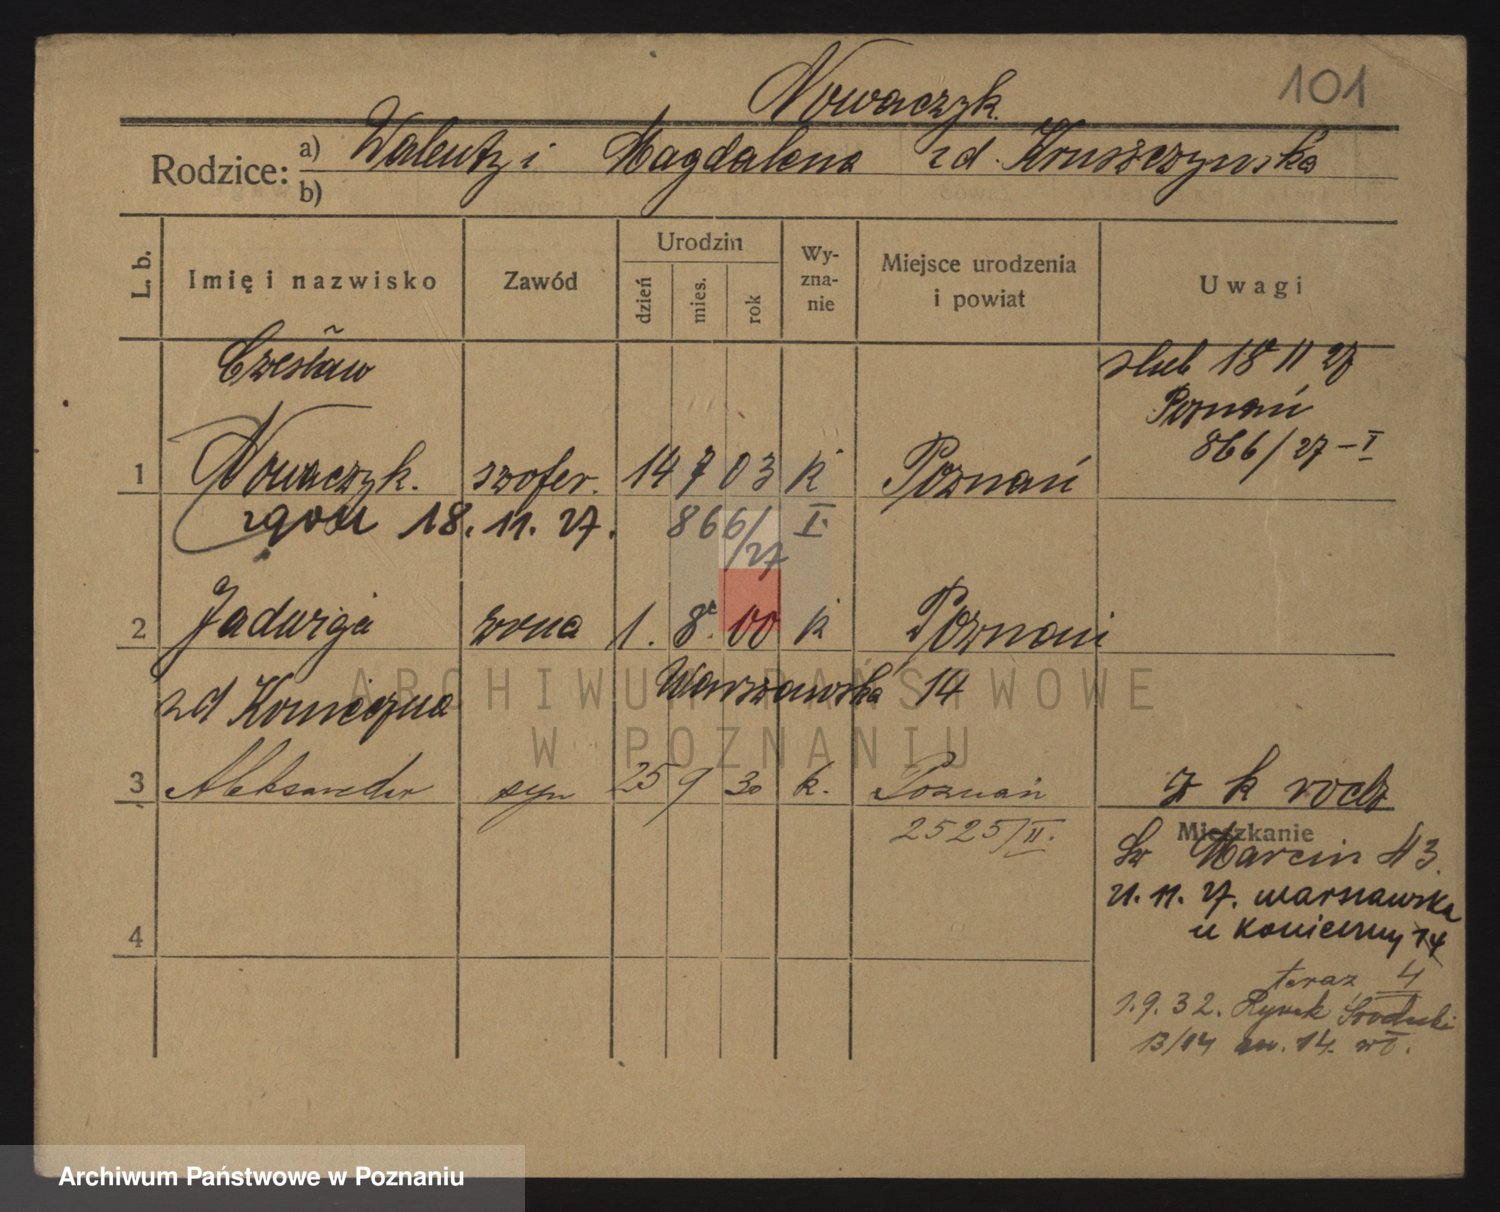 101
Nowaczyk.
Rodzice: a) Walenty i Magdalena zd. Kruszczyńska
b)
L. b. Imię i nazwisko Zawód Urodzin dzień mies. rok Wy-zna-nie Miejsce urodzenia i powiat Uwagi
Czesław ślub 18 11 27
Poznań
866/27 – I
1 Nowaczyk. szofer. 14 7 03 k Poznań
18. 11. 27. 866/27 I.
2 Jadwiga żona 1. 8. 00 k Poznań
zd Konieczna Warszawska 14
ARCHIWUM PAŃSTWOWE
W POZNANIU
3 Aleksander syn 25 9 30 k. Poznań z k rodz
2525/II. Mieszkanie
Św Marcin 43.
21. 11. 27. Warszawska
4 u Konieczny 14
teraz 4
1. 9. 32. Rynek Śródecki
13/14 14.
Archiwum Państwowe w Poznaniu